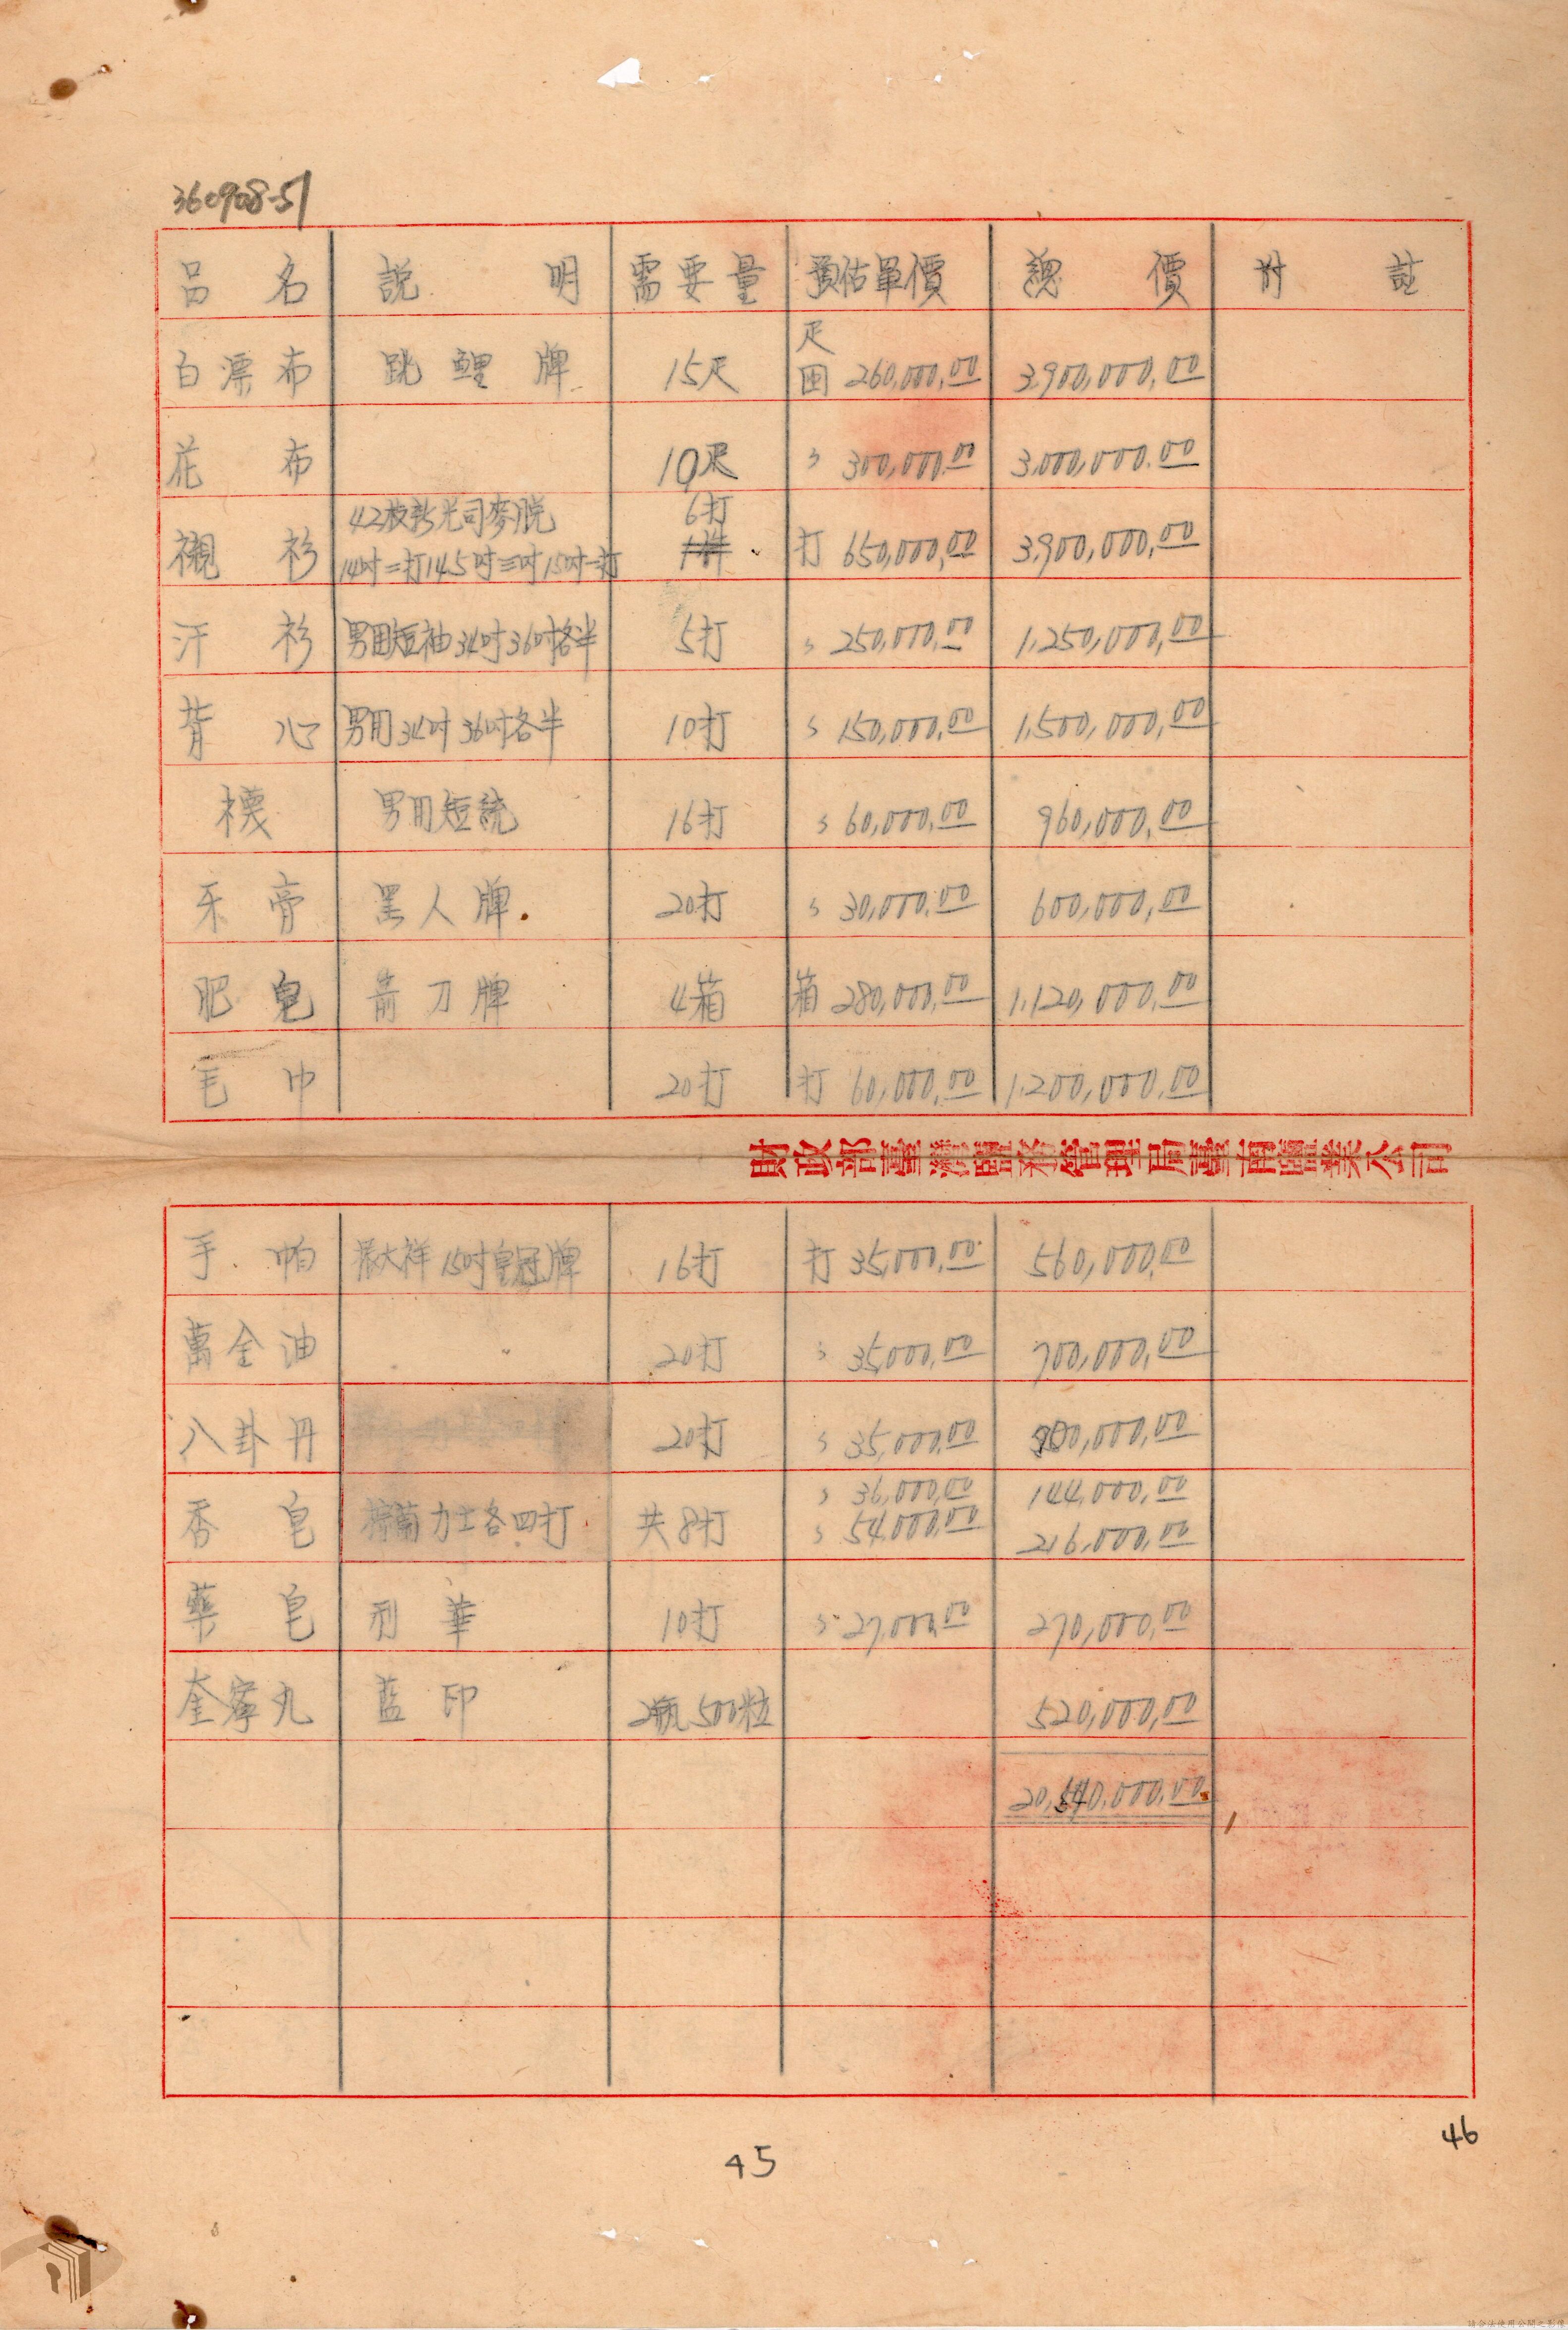 360908-51
品名 說明 需要量 預估單價 總價 附註
白漂布 跳鯉牌 15疋 疋 國 260,000.00 3,900,000.00
花布 10疋 〃 300,000.00 3,000,000.00
42枝新光司麥脫 6打
襯衫 14吋二打14.5吋三吋15吋一打 打 650,000.00 3,900,000.00
汗衫 男用短袖34吋36吋各半 5打 〃 250,000.00 1,250,000.00
背心 男用34吋36吋各半 10打 〃 150,000.00 1,500,000.00
襪 男用短統 16打 〃 60,000.00 960,000.00
牙膏 黑人牌 20打 〃 30,000.00 600,000.00
肥皂 箭刀牌 4箱 箱 280,000.00 1,120,000.00
毛巾 20打 打 60,000.00 1,200,000.00
財政部臺灣鹽務管理局臺南鹽業公司
手帕 大祥15吋皇冠牌 16打 打 35,000.00 560,000.00
萬金油 20打 〃 35,000.00 700,000.00
八卦丹 20打 〃 35,000.00 00,000.00
〃 36,000.00 144,000.00
香皂 力士各四打 共8打 〃 54,000.00 216,000.00
藥皂 利華 10打 〃 27,000.00 270,000.00
奎寧丸 藍印 2瓶500粒 520,000.00
20,540,000.00
45
46